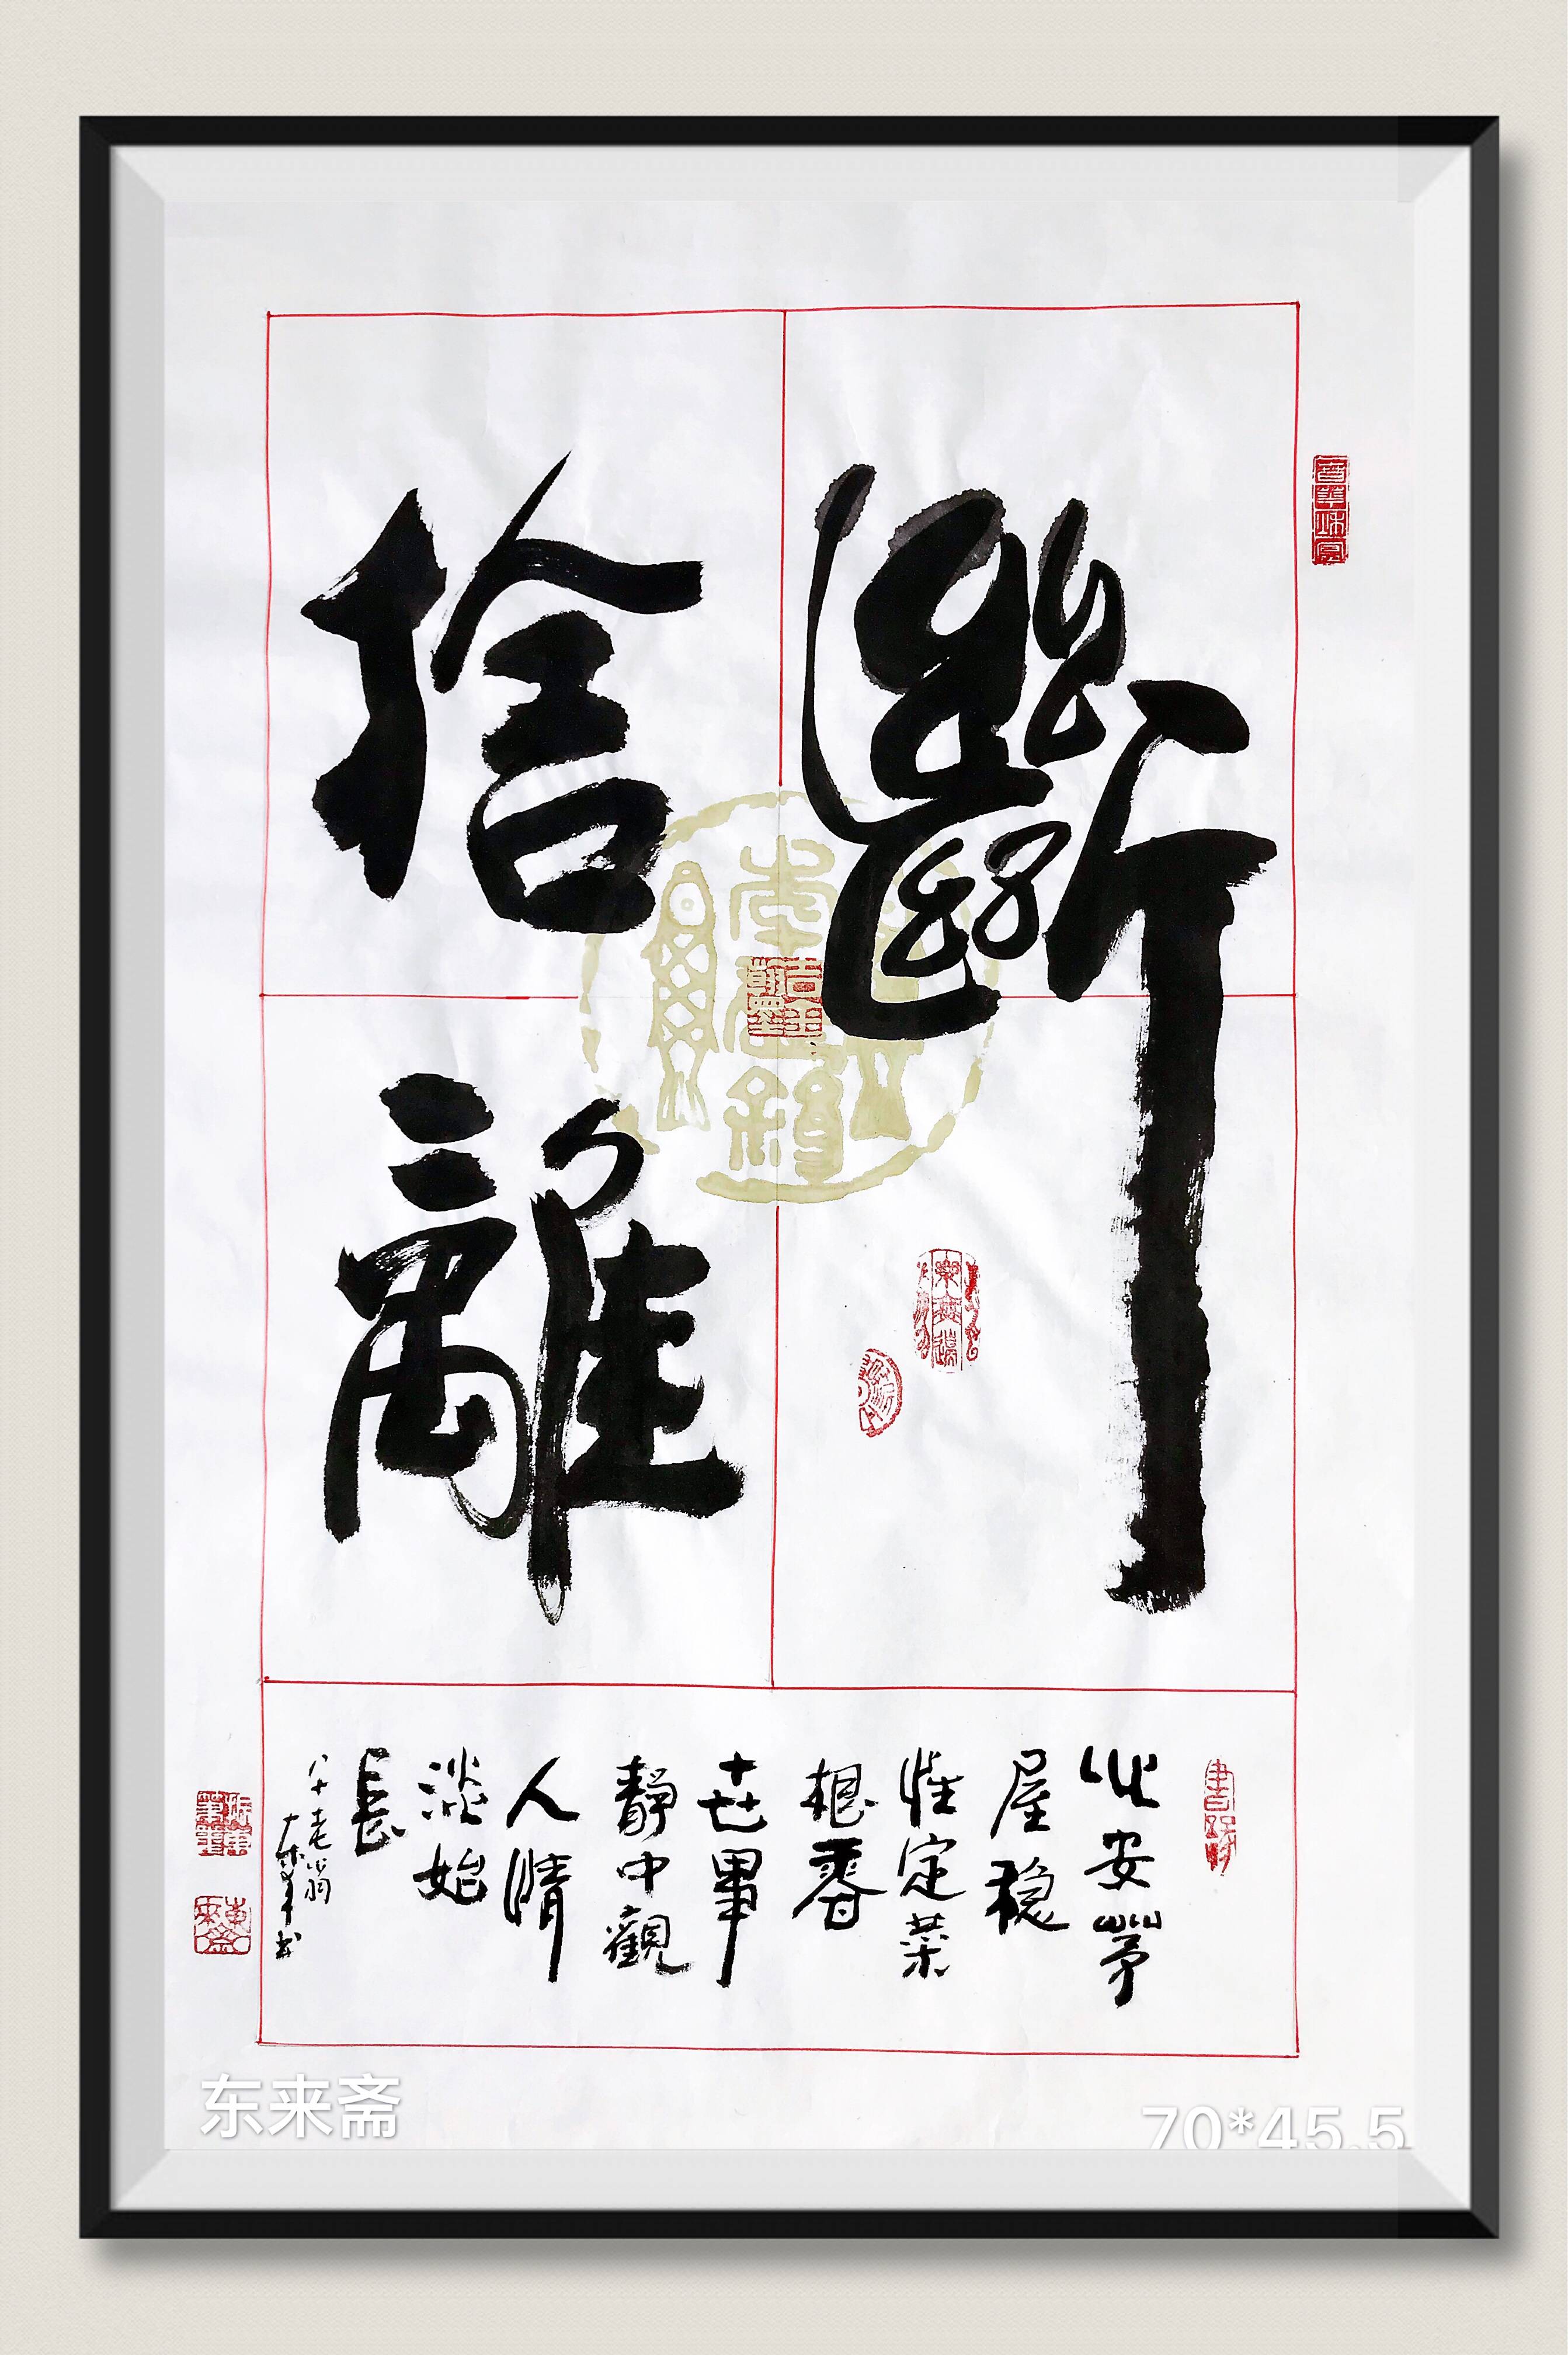 斷
捨
離
心安茅
屋穏
性定菜
根香
世事
靜中觀
人情
淡始
長
八十老翁
东来斋
70*45.5